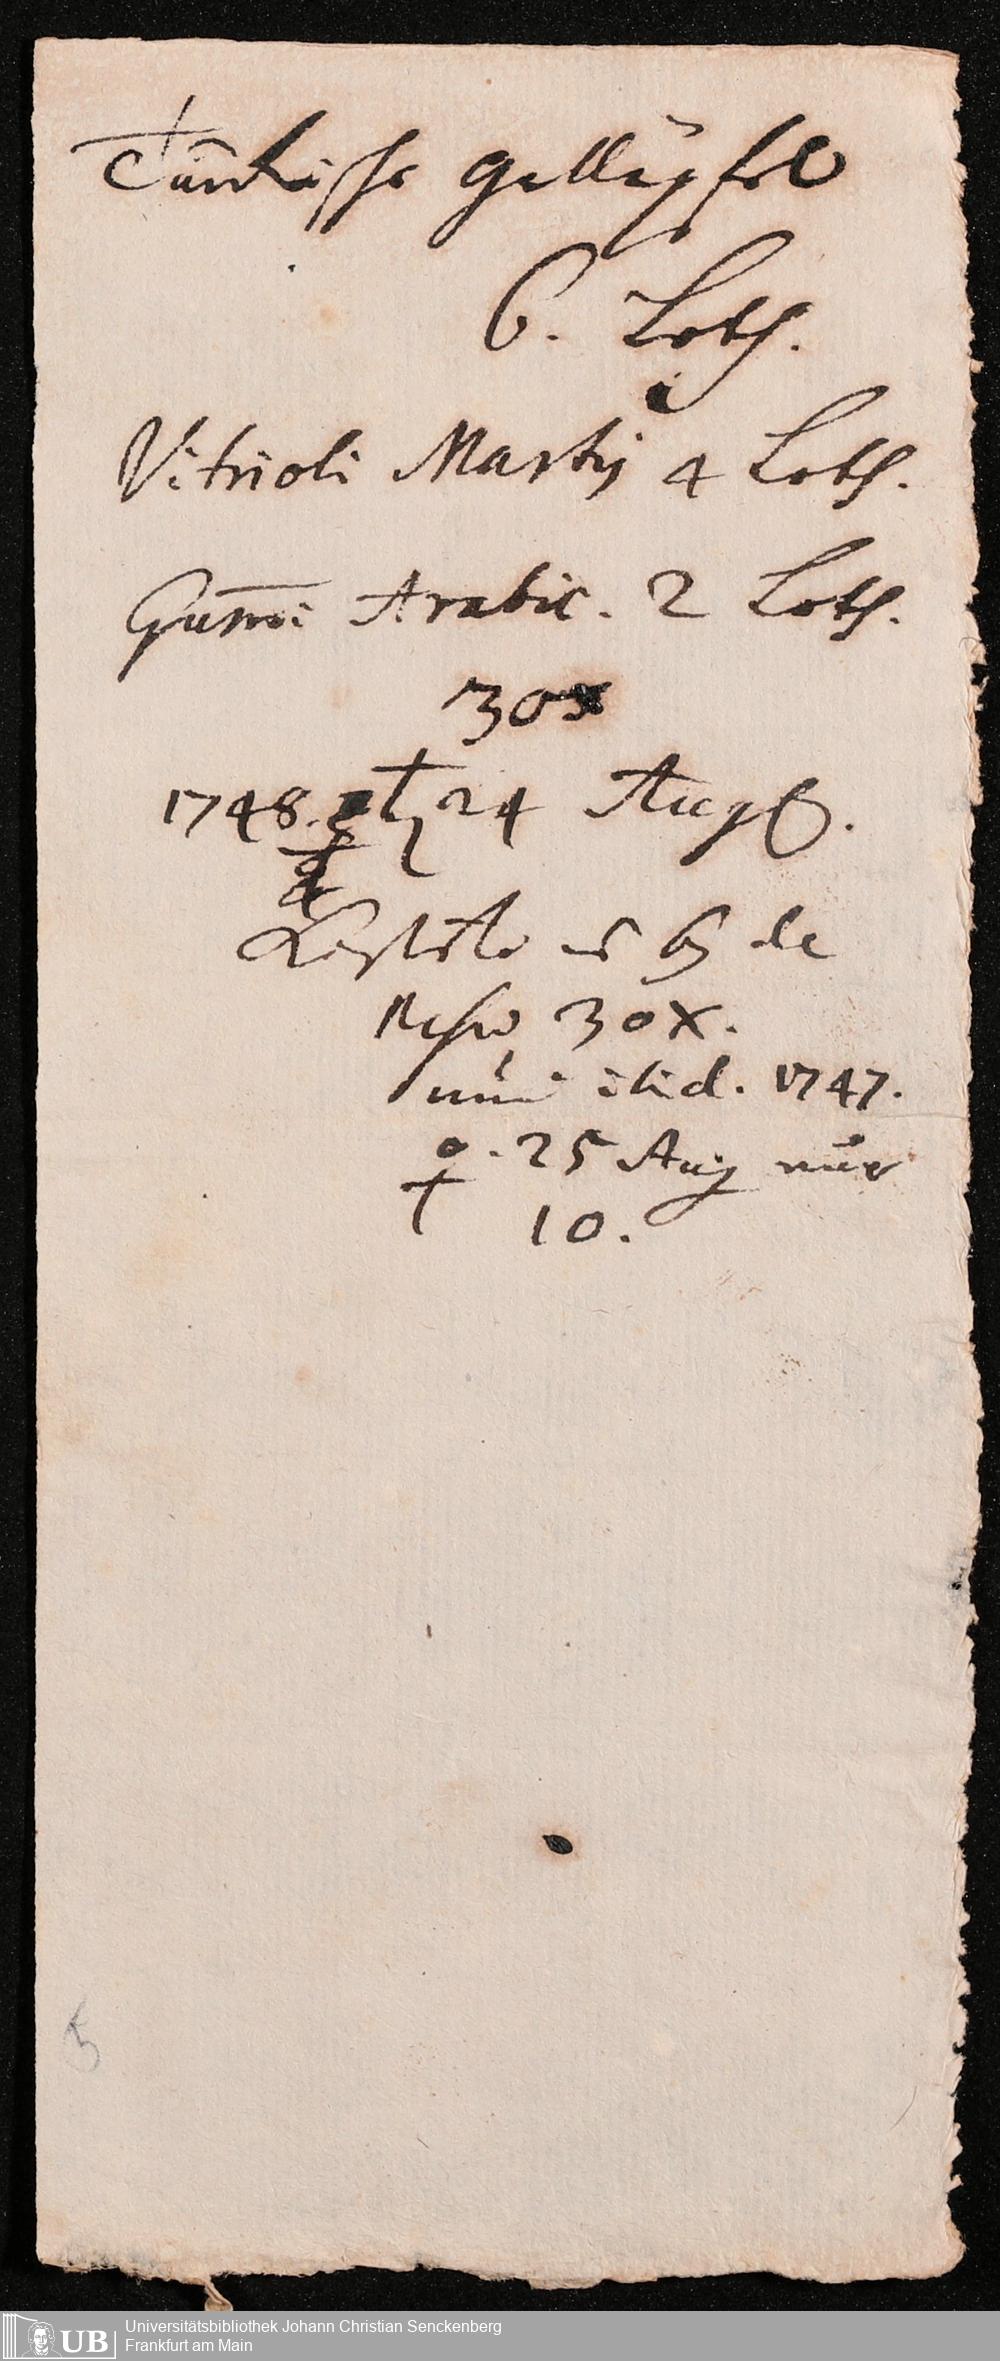 Türckische Galläpfel
6. Loth.
Vitrioli Martis 4 Loth.
Gummi Arabic. 2 Loth.
30x
1748. ♄ 24 Aug.
Kostete
30x.
ibid. 1747.
♀. 25 Aug nur
10.
5
UB
Universitätsbibliothek Johann Christian Senckenberg
Frankfurt am Main